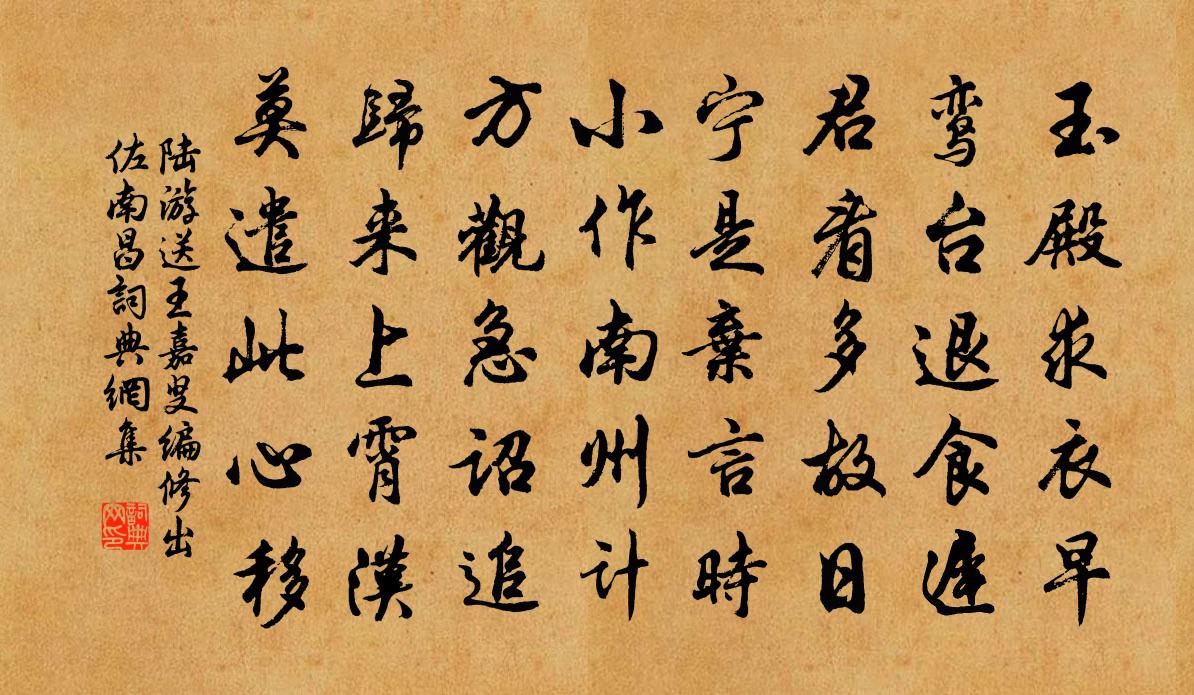 玉殿求衣早
鸾台退食遲
君看多故日
宁是棄言時
小作南州计
方觀急诏追
歸来上霄漢
莫遣此心移
陸游送王嘉叟编修出
佐南昌詞典網集
詞典网印